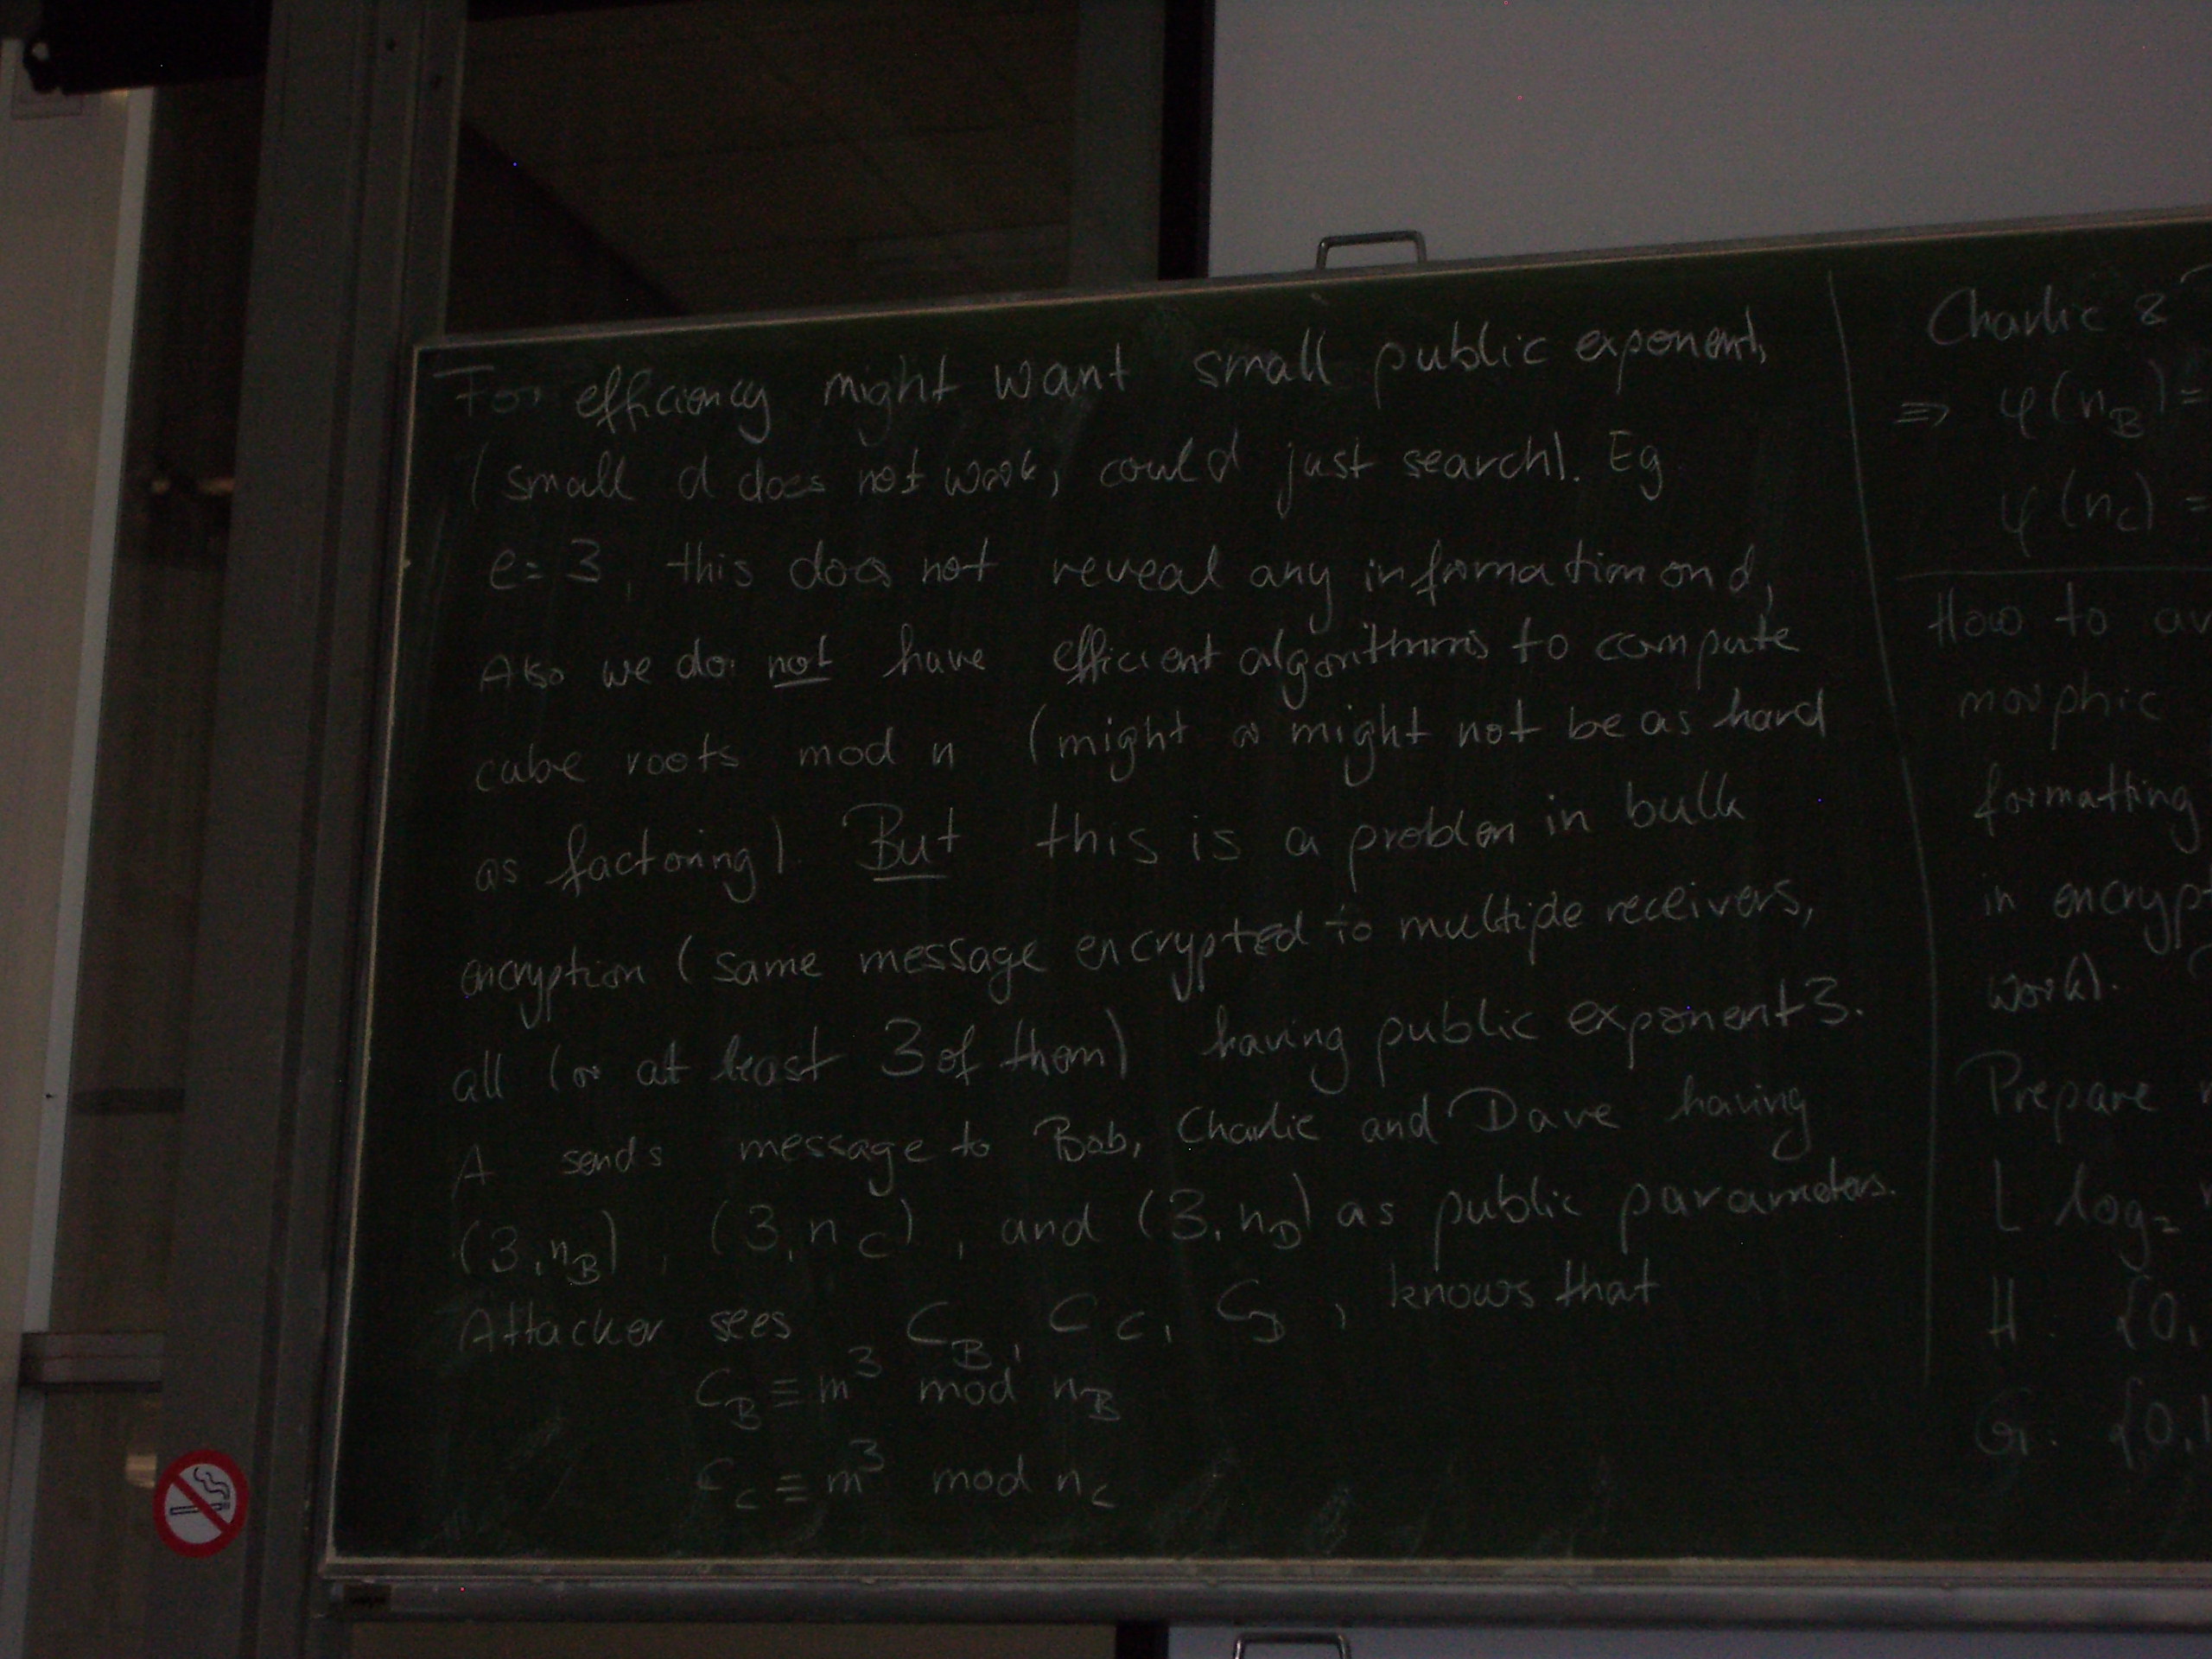 For efficiency might want small public exponent,
(small d does not work, could just search). Eg
e=3, this does not reveal any information on d,
Also we do not have efficient algorithms to compute
cube roots mod n (might or might not be as hard
as factoring). But this is a problem in bulk
encryption (same message encrypted to multiple receivers,
all (or at least 3 of them) having public exponent 3.
A sends message to Bob, Charlie and Dave having
(3,n_B), (3,n_C), and (3,n_D) as public parameters.
Attacker sees C_B, C_C, C_D, knows that
C_B ≡ m³ mod n_B
C_C ≡ m³ mod n_C
Charlie &
⇒ φ(n_B) =
φ(n_C) =
How to
morphic
formatting
in
work).
Prepare
log₂
H: {0,
G: {0,1